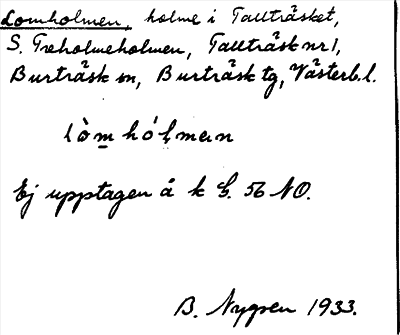 Lomholmen, holme i Tallträsket,
S. Treholmeholmen, Tallträsk nr 1,
Burträsk sn, Burträsk tg, Västerb. l.
lòm hól̥mən
Ej upptagen å k bl. 56 NO.
B. Nygren 1933.